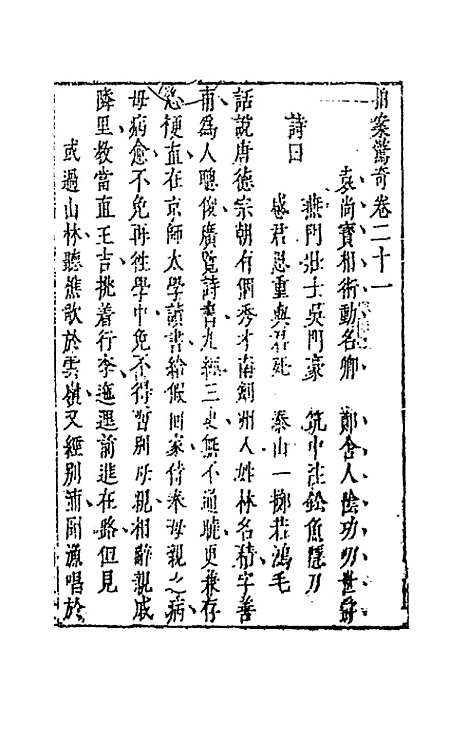 拍案驚奇卷二十一
袁尚寶相術動名卿　鄭舍人陰功叨世爵
詩曰
燕門壯士吳門豪　筑中注鉛魚隱刀
感君恩重與君死　泰山一擲若鴻毛
話說唐德宗朝有個秀才南劍州人姓林名積字善
甫為人聰俊廣覽詩書九經三史無不通曉更兼存
心便直在京師太學讀書給假回家侍奉母親之病
母病愈不免再往學中免不得暫別母親相辭親戚
隣里教當直王吉挑着行李迤邐前進在路但見
或過山林聽樵歌於雲嶺又經別浦聞漁唱於